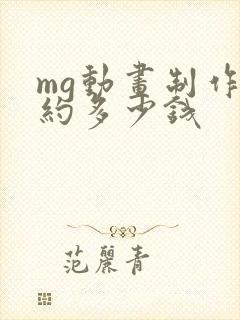 mg動畫制作
約多少錢
范麗青